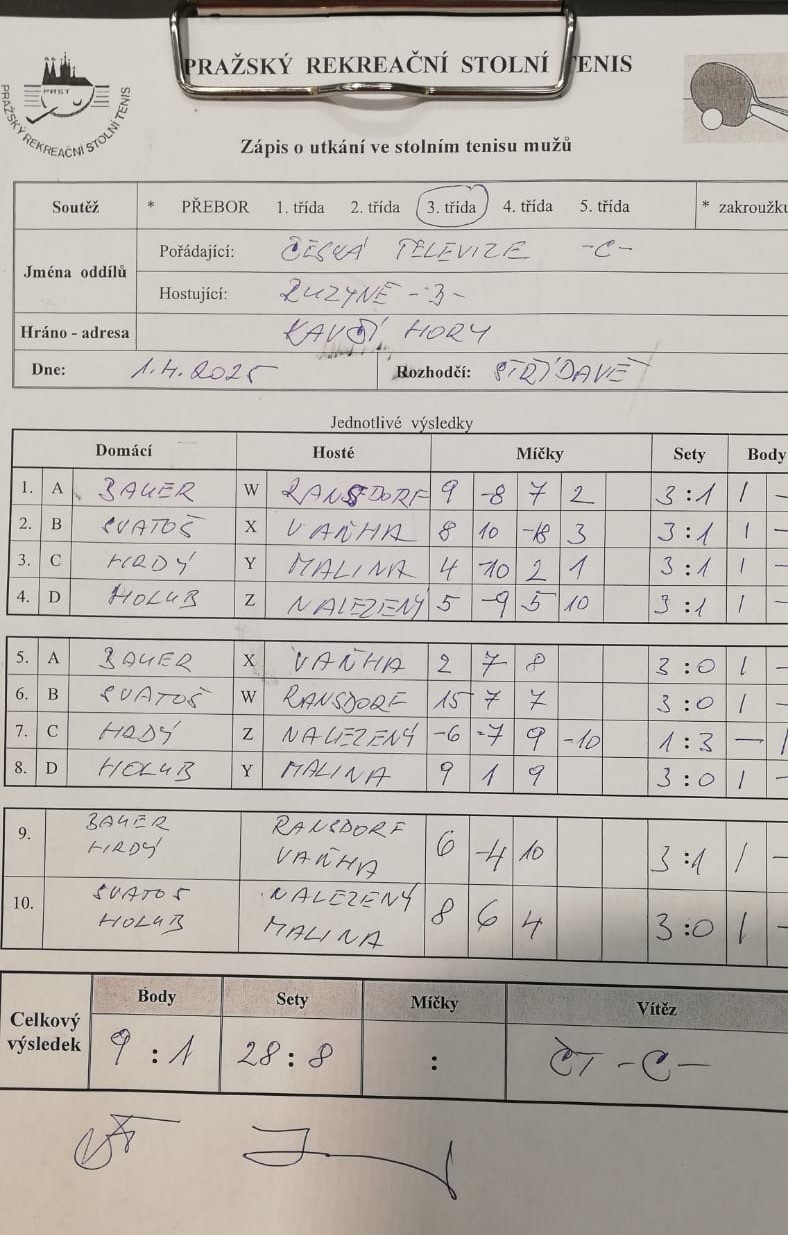 PRAŽSKÝ REKREAČNÍ STOLNÍ TENIS
PRST
PRAŽSKÝ REKREAČNÍ STOLNÍ TENIS
Zápis o utkání ve stolním tenisu mužů
Soutěž * PŘEBOR 1. třída 2. třída 3. třída 4. třída 5. třída * zakroužku
Jména oddílů
Pořádající: ČESKÁ TELEVIZE -C-
Hostující: RUZYNĚ -3-
Hráno - adresa KAVČÍ HORY
Dne: 1.4.2025 Rozhodčí: STŘÍDAVĚ
Jednotlivé výsledky
Domácí Hosté Míčky Sety Body
1. A BAUER W RANSDORF 9 -8 7 2 3:1 1 -
2. B SVATOŠ X VAŇHA 8 10 -18 3 3:1 1 -
3. C HRDÝ Y MALINA 4 -10 2 1 3:1 1 -
4. D HOLUB Z NALEZENÝ 5 -9 5 10 3:1 1 -
5. A BAUER X VAŇHA 2 7 8 3:0 1 -
6. B SVATOŠ W RANSDORF 15 7 7 3:0 1 -
7. C HRDÝ Z NALEZENÝ -6 -7 9 -10 1:3 - 1
8. D HOLUB Y MALINA 9 1 9 3:0 1 -
9. BAUER HRDÝ RANSDORF VAŇHA 6 -4 10 3:1 1 -
10. SVATOŠ HOLUB NALEZENÝ MALINA 8 6 4 3:0 1 -
Celkový výsledek
Body Sety Míčky Vítěz
9:1 28:8 : ČT -C-